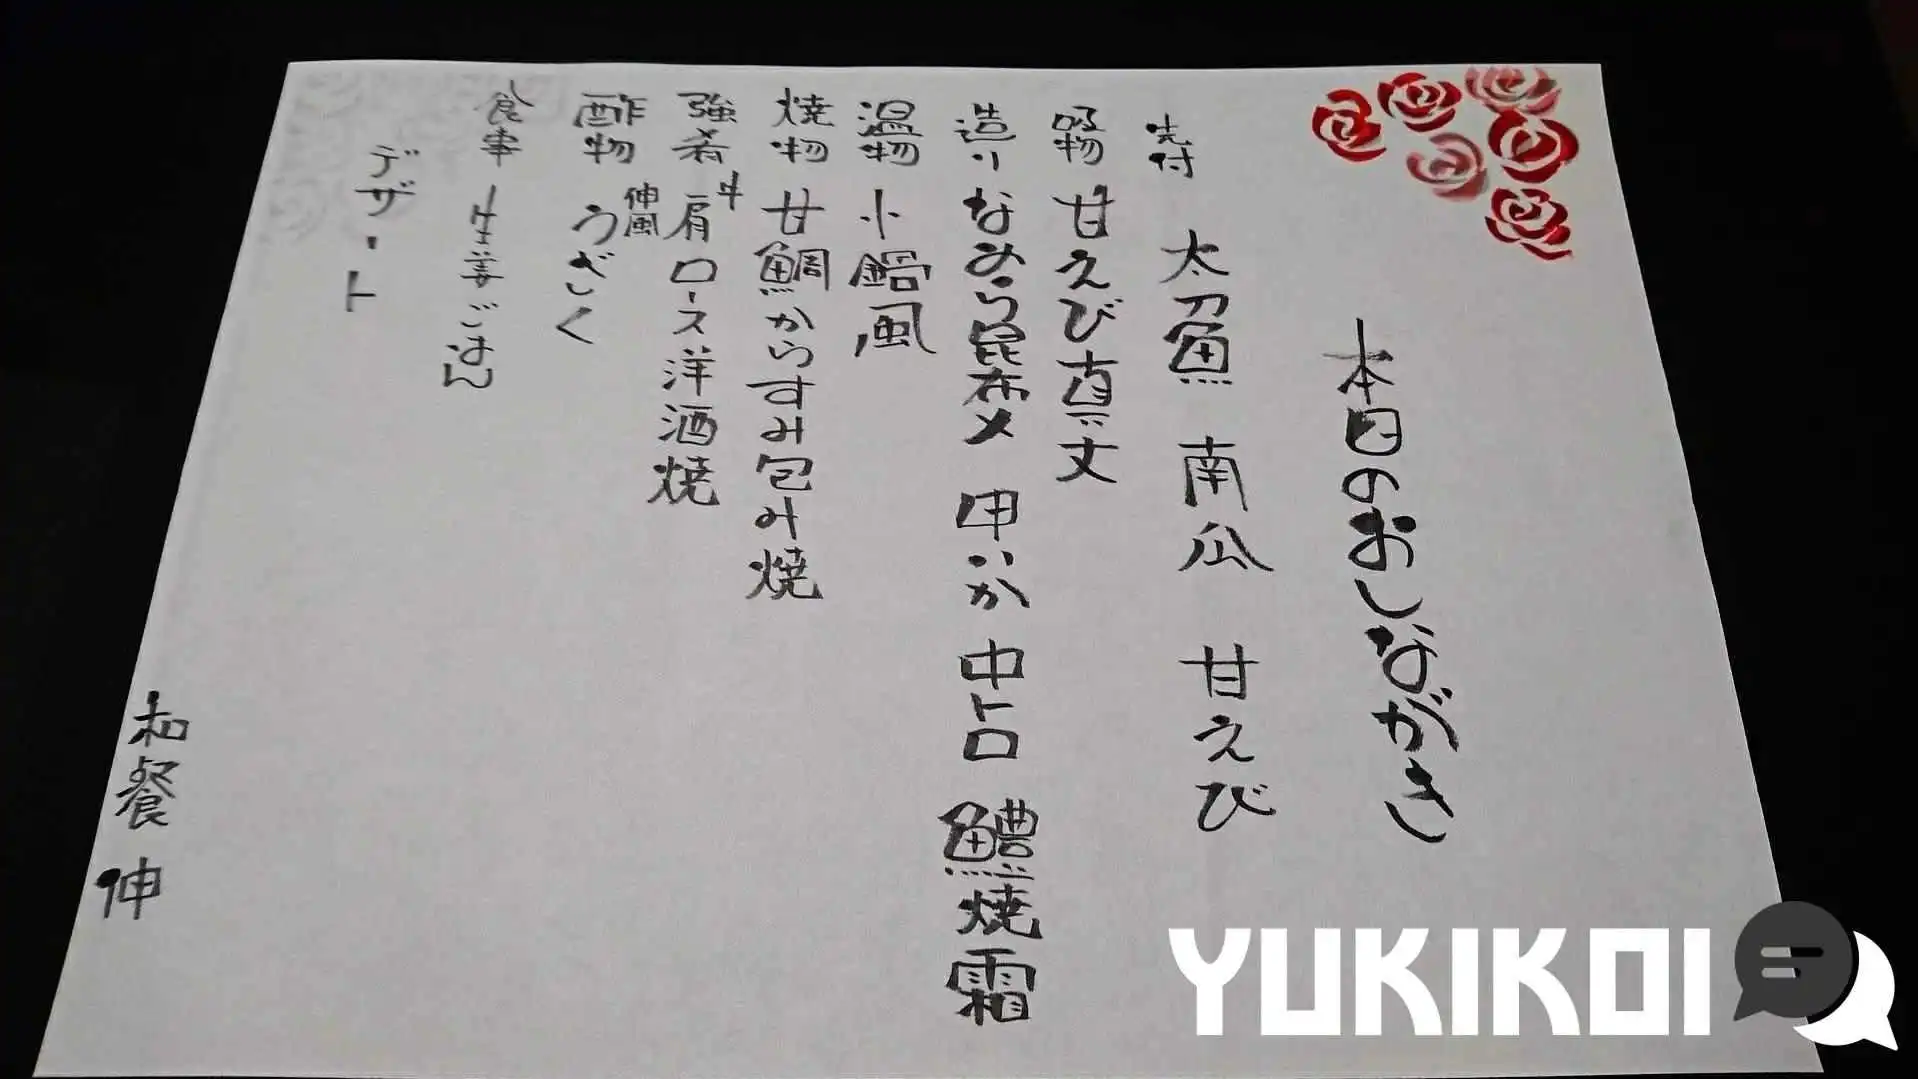 本日のおしながき
先付 太刀魚 南瓜 甘えび
吸物 甘えび真丈
造り なめら昆布〆 甲いか 中トロ 鱧焼霜
温物 小鍋風
焼物 甘鯛からすみ包み焼
強肴 牛肩ロース洋酒焼
酢物 伸風うざく
食事 生姜ごはん
デザート
和餐 伸
YUKIKOI